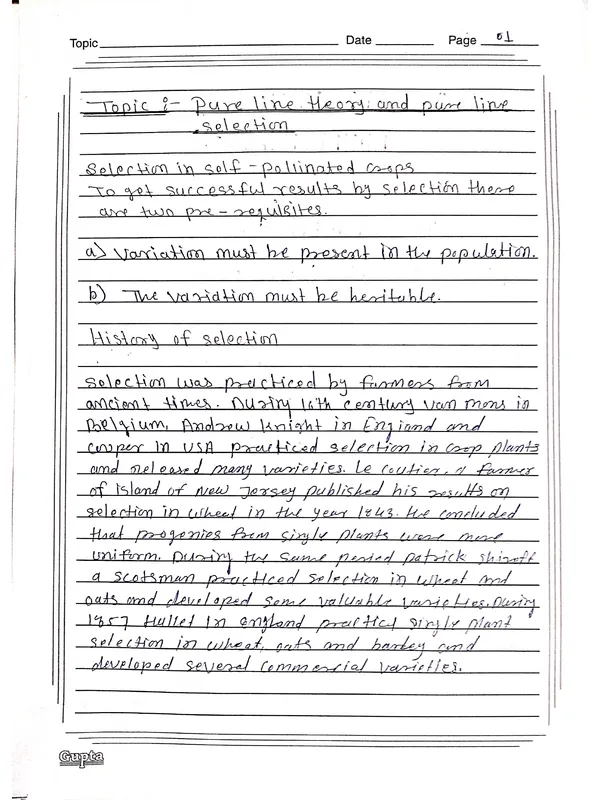 Topic Date Page 01
Topic :- Pure line theory and pure line
selection
Selection in self-pollinated crops
To get successful results by selection there
are two pre-requisites.
a) Variation must be present in the population.
b) The variation must be heritable.
History of selection
Selection was practiced by farmers from
ancient times. During 16th century Van mons in
Belgium, Andrew knight in England and
Cooper in USA practiced selection in crop plants
and released many varieties. Le coutier, a farmer
of island of New Jersey published his results on
selection in wheat in the year 1843. He concluded
that progenies from single plants were more
uniform. During the same period patrick shireff
a scotsman practiced selection in wheat and
oats and developed some valuable varieties. During
1857 Hallet in england practiced single plant
selection in wheat, oats and barley and
developed several commercial varieties.
Gupta